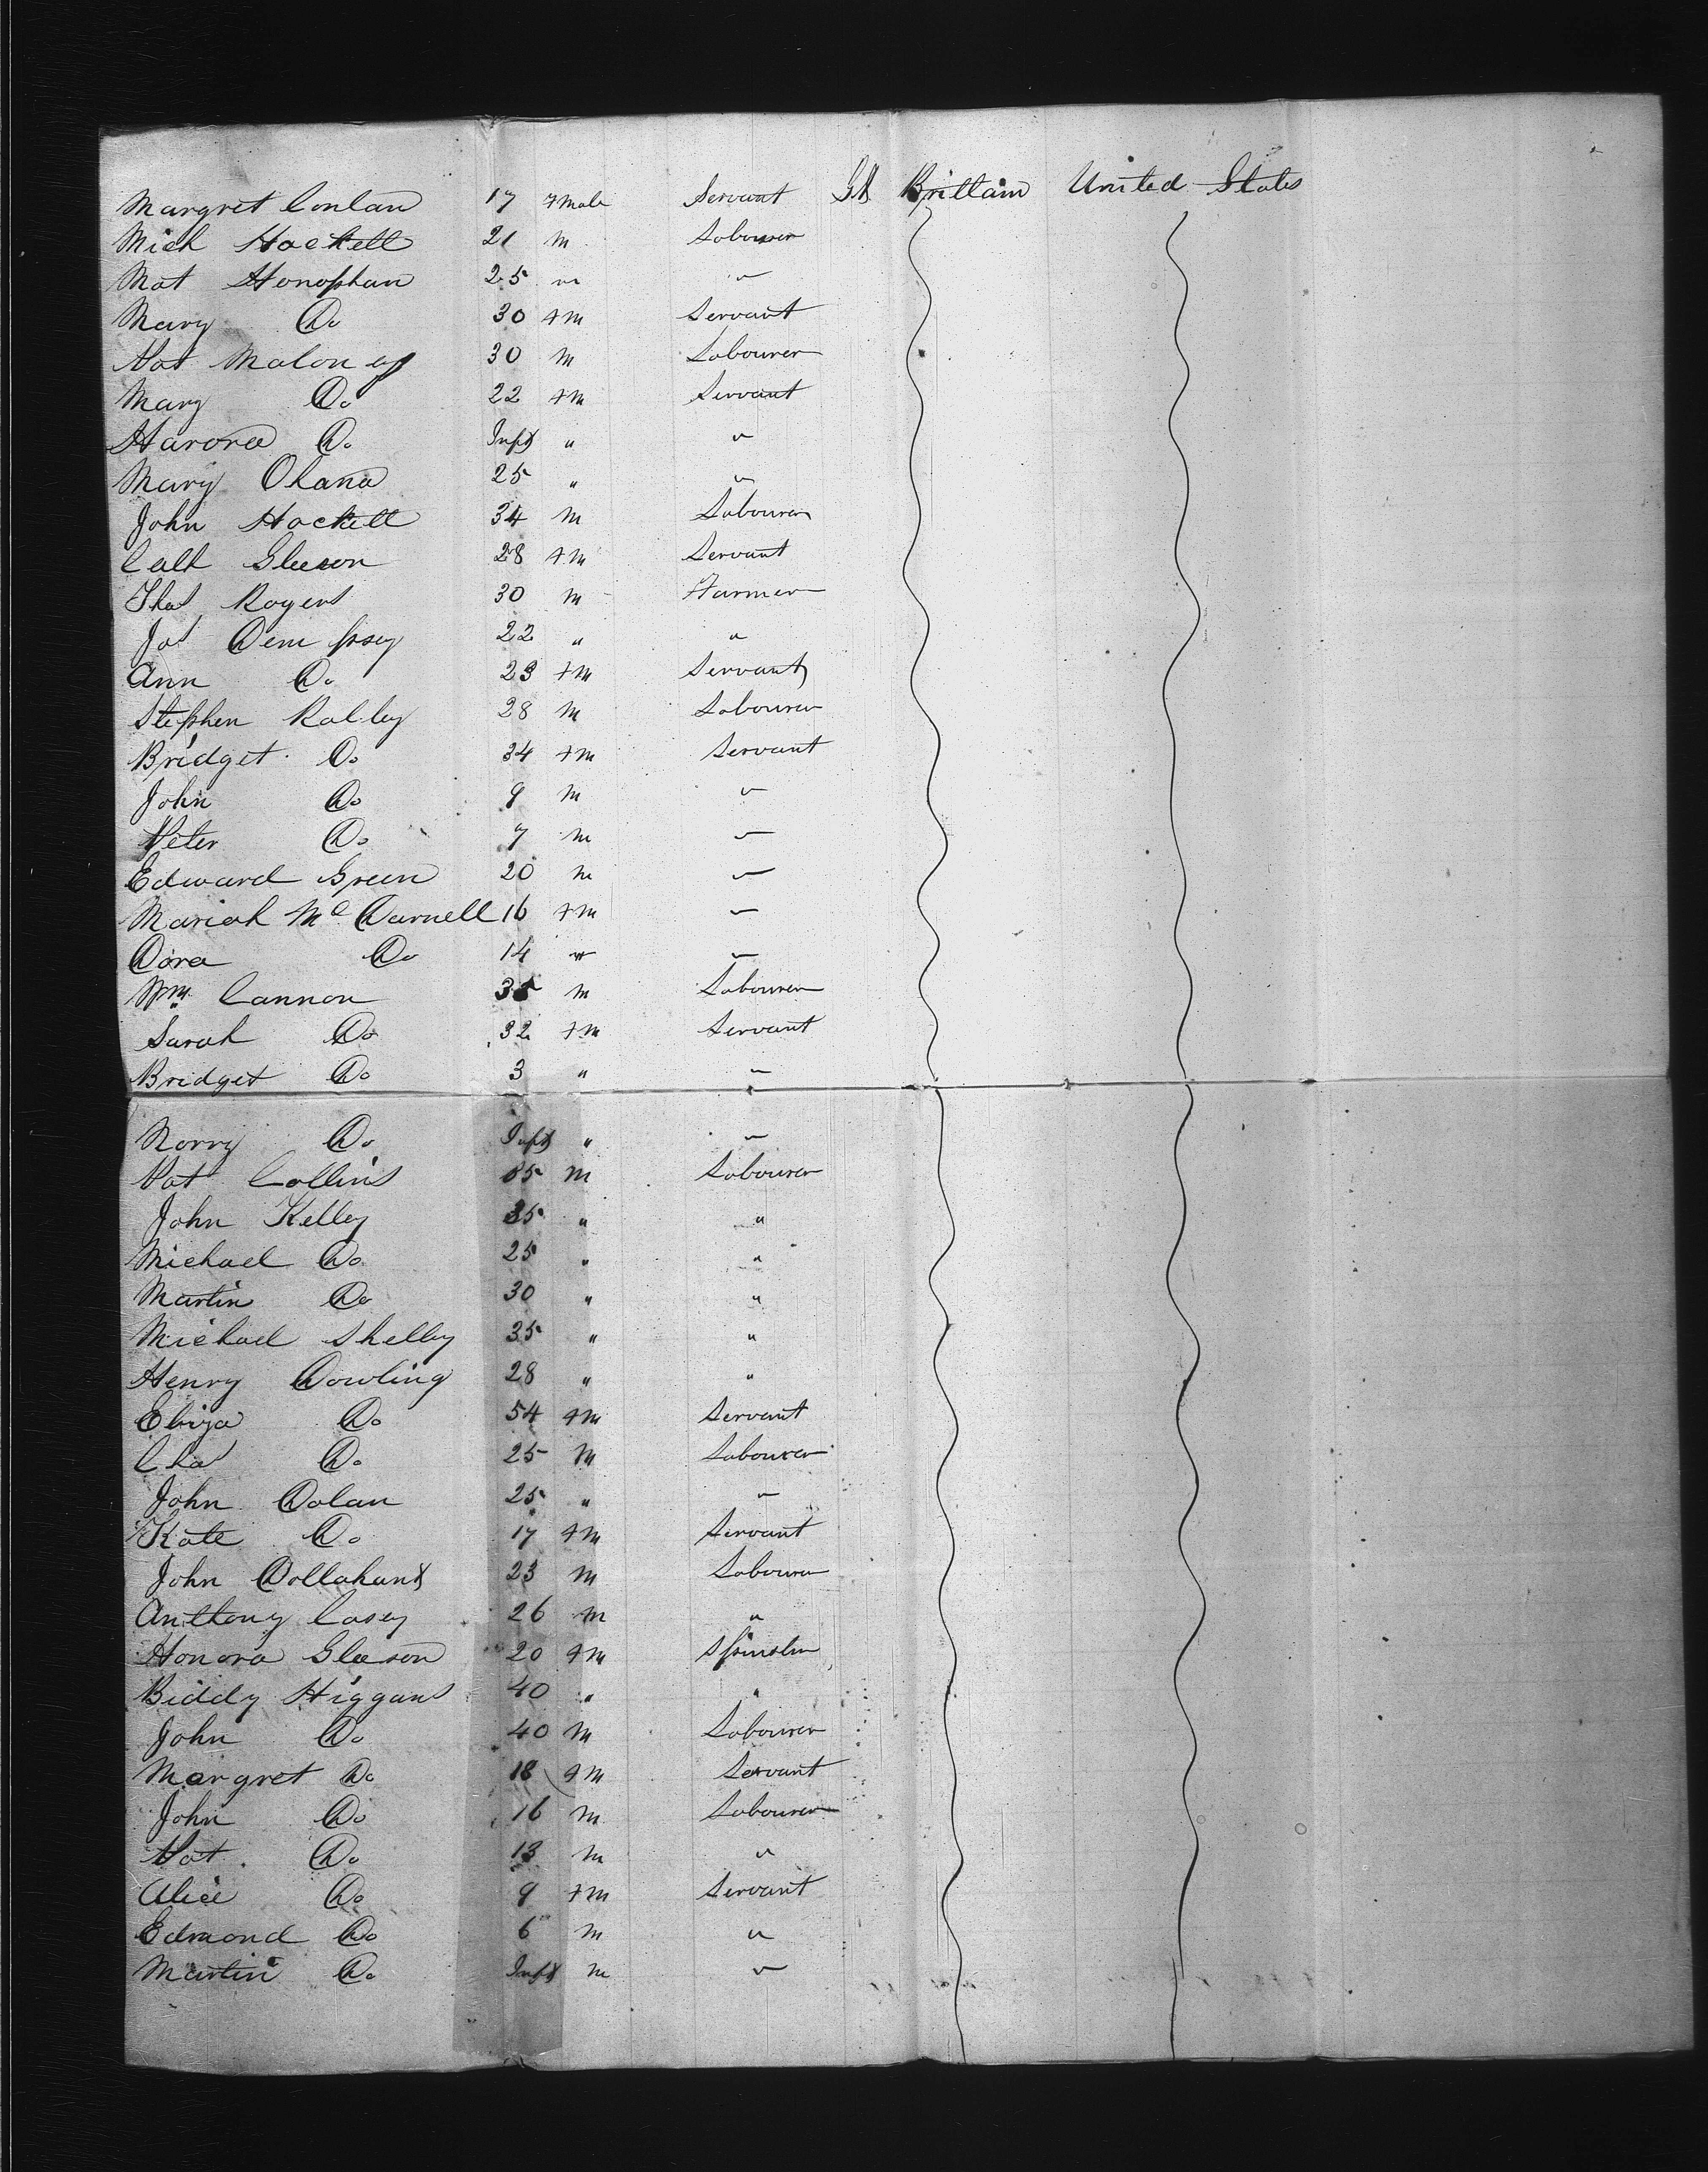 Margret Conlan 17 Fmale Servant Gt Brittain United States
Mich Hackett 21 M Labourer
Mat Honophan 25 m "
Mary Do 30 FM Servant
Pat Maloney 30 M Labourer
Mary Do 22 FM Servant
Harora Do Inft " "
Mary Ohana 25 " "
John Hackett 34 M Labourer
Cath Gleeson 28 FM Servant
Thos Rogers 30 M Farmer
Jas Dempsey 22 " "
Ann Do 23 FM Servant
Stephen Ralley 28 M Labourer
Bridget Do 34 FM Servant
John Do 9 M "
Peter Do 7 M "
Edward Green 20 M "
Mariah Mc Darnell 16 FM "
Dora Do 14 " "
Wm Cannon 35 M Labourer
Sarah Do 32 FM Servant
Bridget Do 3 " "
Norry Do Inft " "
Pat Collins M Labourer
John Kelley 35 " "
Michael Do 25 " "
Martin Do 30 " "
Michael Shelley 35 " "
Henry Dowling 28 " "
Eliza Do 54 FM Servant
Chas Do 25 M Labourer
John Dolan 25 " "
Kate Do 17 FM Servant
John Dollahant 23 M Labourer
Anthony Casey 26 M "
Honora Gleeson 20 FM Spinster
Biddy Higgans 40 " "
John Do 40 M Labourer
Margret Do 18 FM Servant
John Do 16 M Labourer
Pat Do 13 M "
Alice Do 9 FM Servant
Edmond Do 6 M "
Martin Do Inft M "